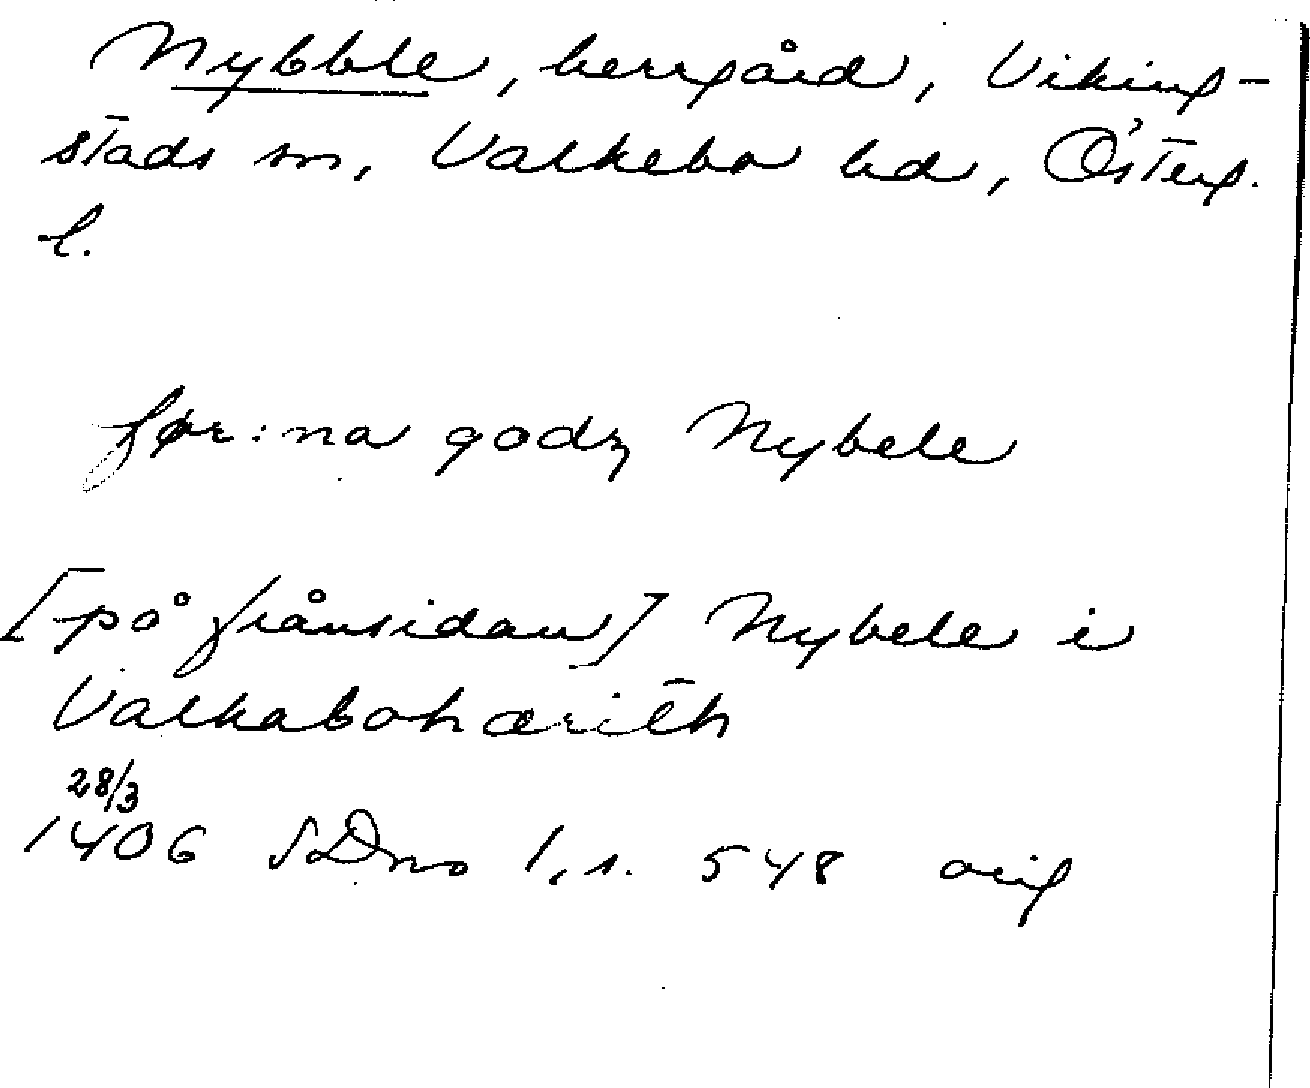 Nybble, herrgård, Viking-
stads sn, Valkebo hd, Österg.
l.
før:na godz Nybele
[på frånsidan] Nybele i
Valkabohæríth
28/3
1406 SDns 1, s. 548 orig